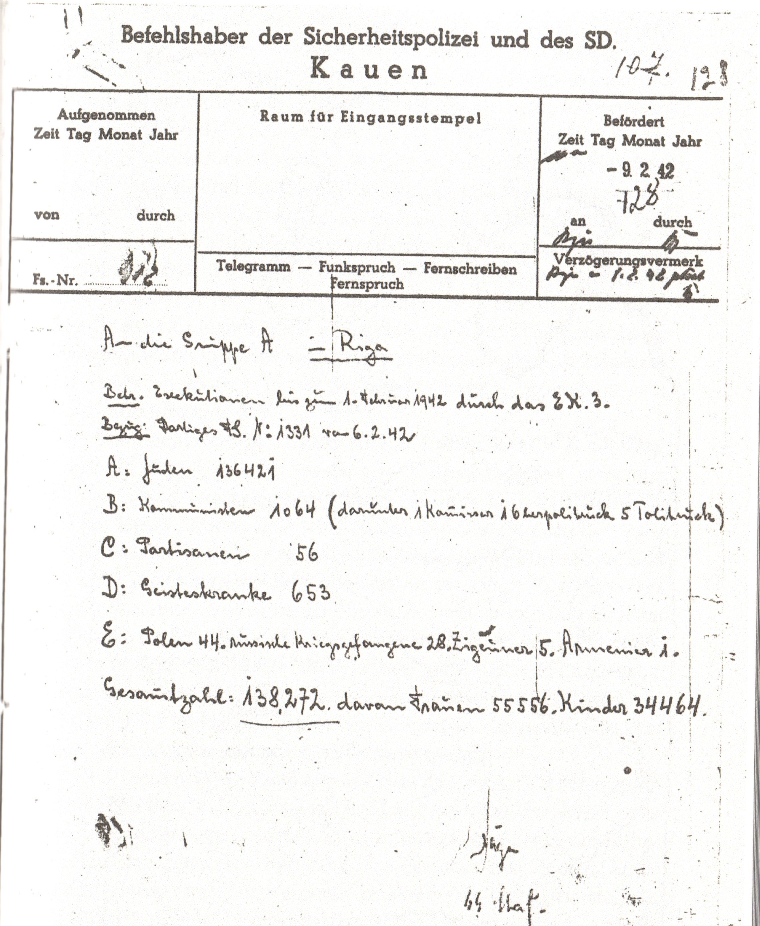 Befehlshaber der Sicherheitspolizei und des SD.
Kauen
107. 128
Aufgenommen
Zeit Tag Monat Jahr
von durch
Fs.-Nr. 
Raum für Eingangsstempel
Telegramm — Funkspruch — Fernschreiben
Fernspruch
Befördert
Zeit Tag Monat Jahr
- 9. 2. 42
728
an durch
Verzögerungsvermerk
An die Gruppe A in Riga
Betr. Exekutionen bis zum 1. Februar 1942 durch das EK. 3.
Bezug: Dortiges FS. Nr: 1331 vom 6.2.42
A: Juden 136421
B: Kommunisten 1064 (darunter 1 Kommissar 1 Oberpolitruck 5 Politruck)
C: Partisanen 56
D: Geisteskranke 653
E: Polen 44. russische Kriegsgefangene 28. Zigeuner 5. Armenier 1.
Gesamtzahl: 138,272. davon Frauen 55556. Kinder 34464.
Jäger
SS Staf.